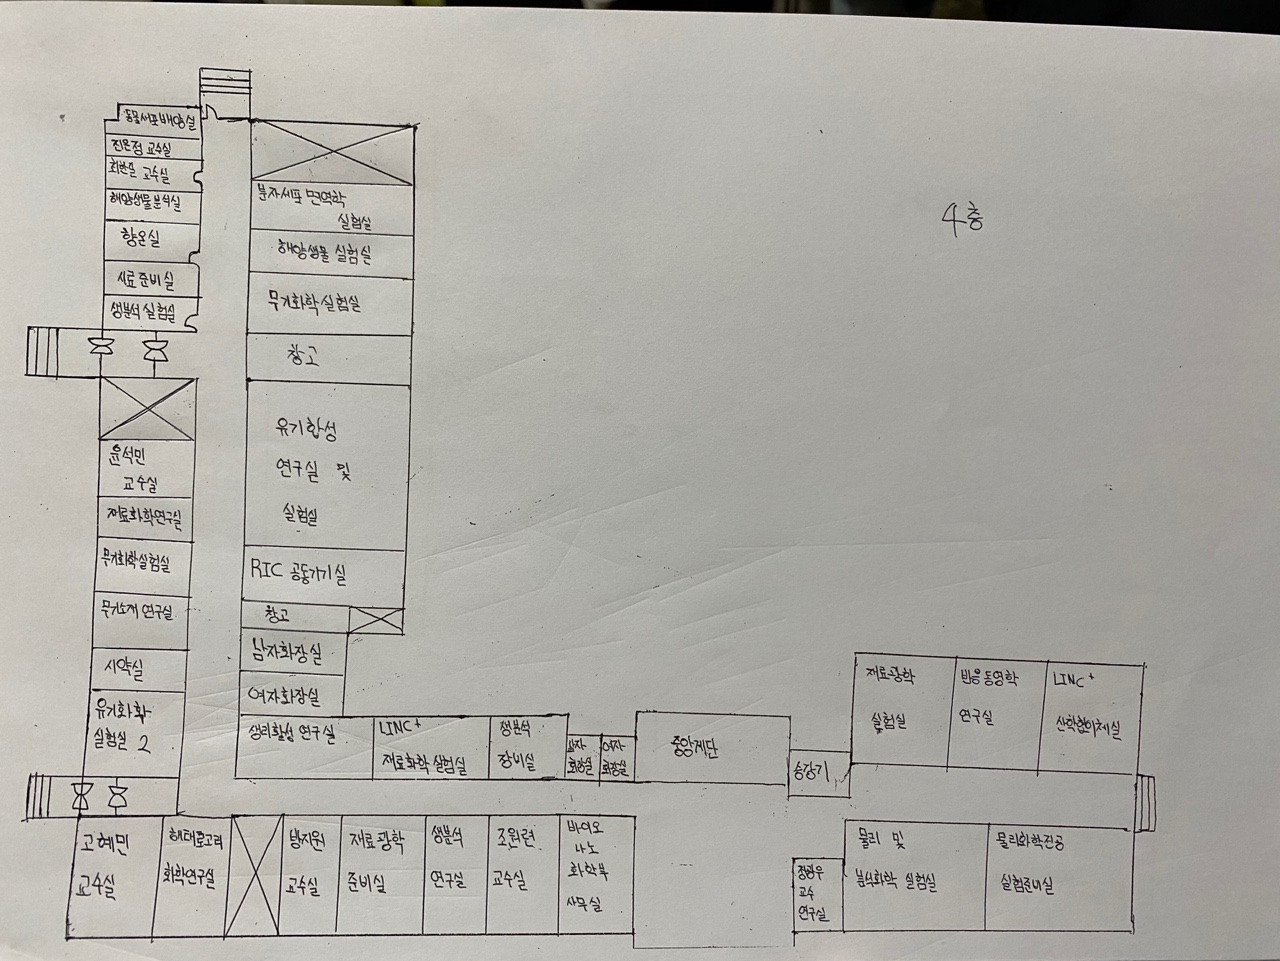 4층
동물세포배양실
진은정 교수실
최한실 교수실
해양생물분석실
항온실
시료준비실
생분석실험실
윤석민
교수실
재료화학연구실
무기화학실험실
무기소재 연구실
시약실
유기화학
실험실 2
분자세포 면역학
실험실
해양생물 실험실
무기화학실험실
창고
유기합성
연구실 및
실험실
RIC 공동기기실
창고
남자화장실
여자화장실
생리활성 연구실
LINC+
재료화학 실험실
생분석
장비실
남자
화장실
여자
화장실
중앙계단
승강기
재료광학
실험실
반응동영학
연구실
LINC+
산학협의체실
고혜민
교수실
화학연구실
방지원
교수실
재료광학
준비실
생분석
연구실
조원련
교수실
바이오
나노
화학부
사무실
정광우
교수
연구실
물리 및
분석화학 실험실
물리화학전공
실험준비실